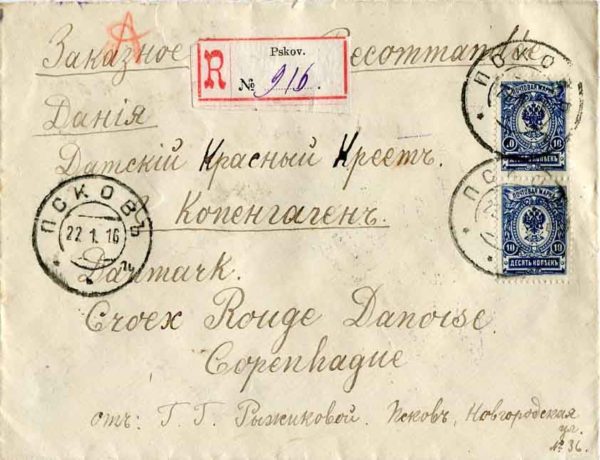 Заказное Recommandée
R Pskov.
№ 916.
Данія
Датскій Красный Крестъ.
Копенгагенъ.
Danmark.
Croex Rouge Danoise.
Copenhague
отъ: Г. Г. Рыжиковой. Псковъ, Новгородская
ул.
№ 36.
ПСКОВЪ
22.1.16
ПСКОВ
ПОЧТОВАЯ МАРКА
10 10
ПС
ПОЧТОВАЯ МАРКА
10 10
ДЕСЯТЬ КОПѢЕКЪ